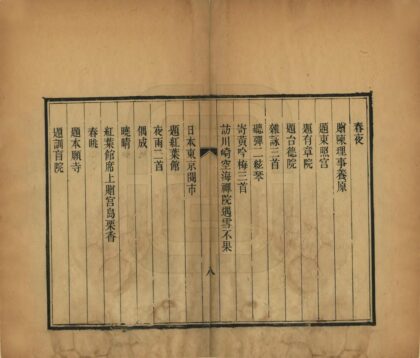 春夜
贈陳理事養原
題東照宮
題有章院
題台德院
雜詠三首
聽彈二絃琴
寄黃吟梅三首
訪川崎空海禪院遇雪不果
八
日本東京開市
題紅葉館
夜雨二首
偶成
曉晴
紅葉館席上贈宮島栗香
春眺
題本願寺
題訓盲院